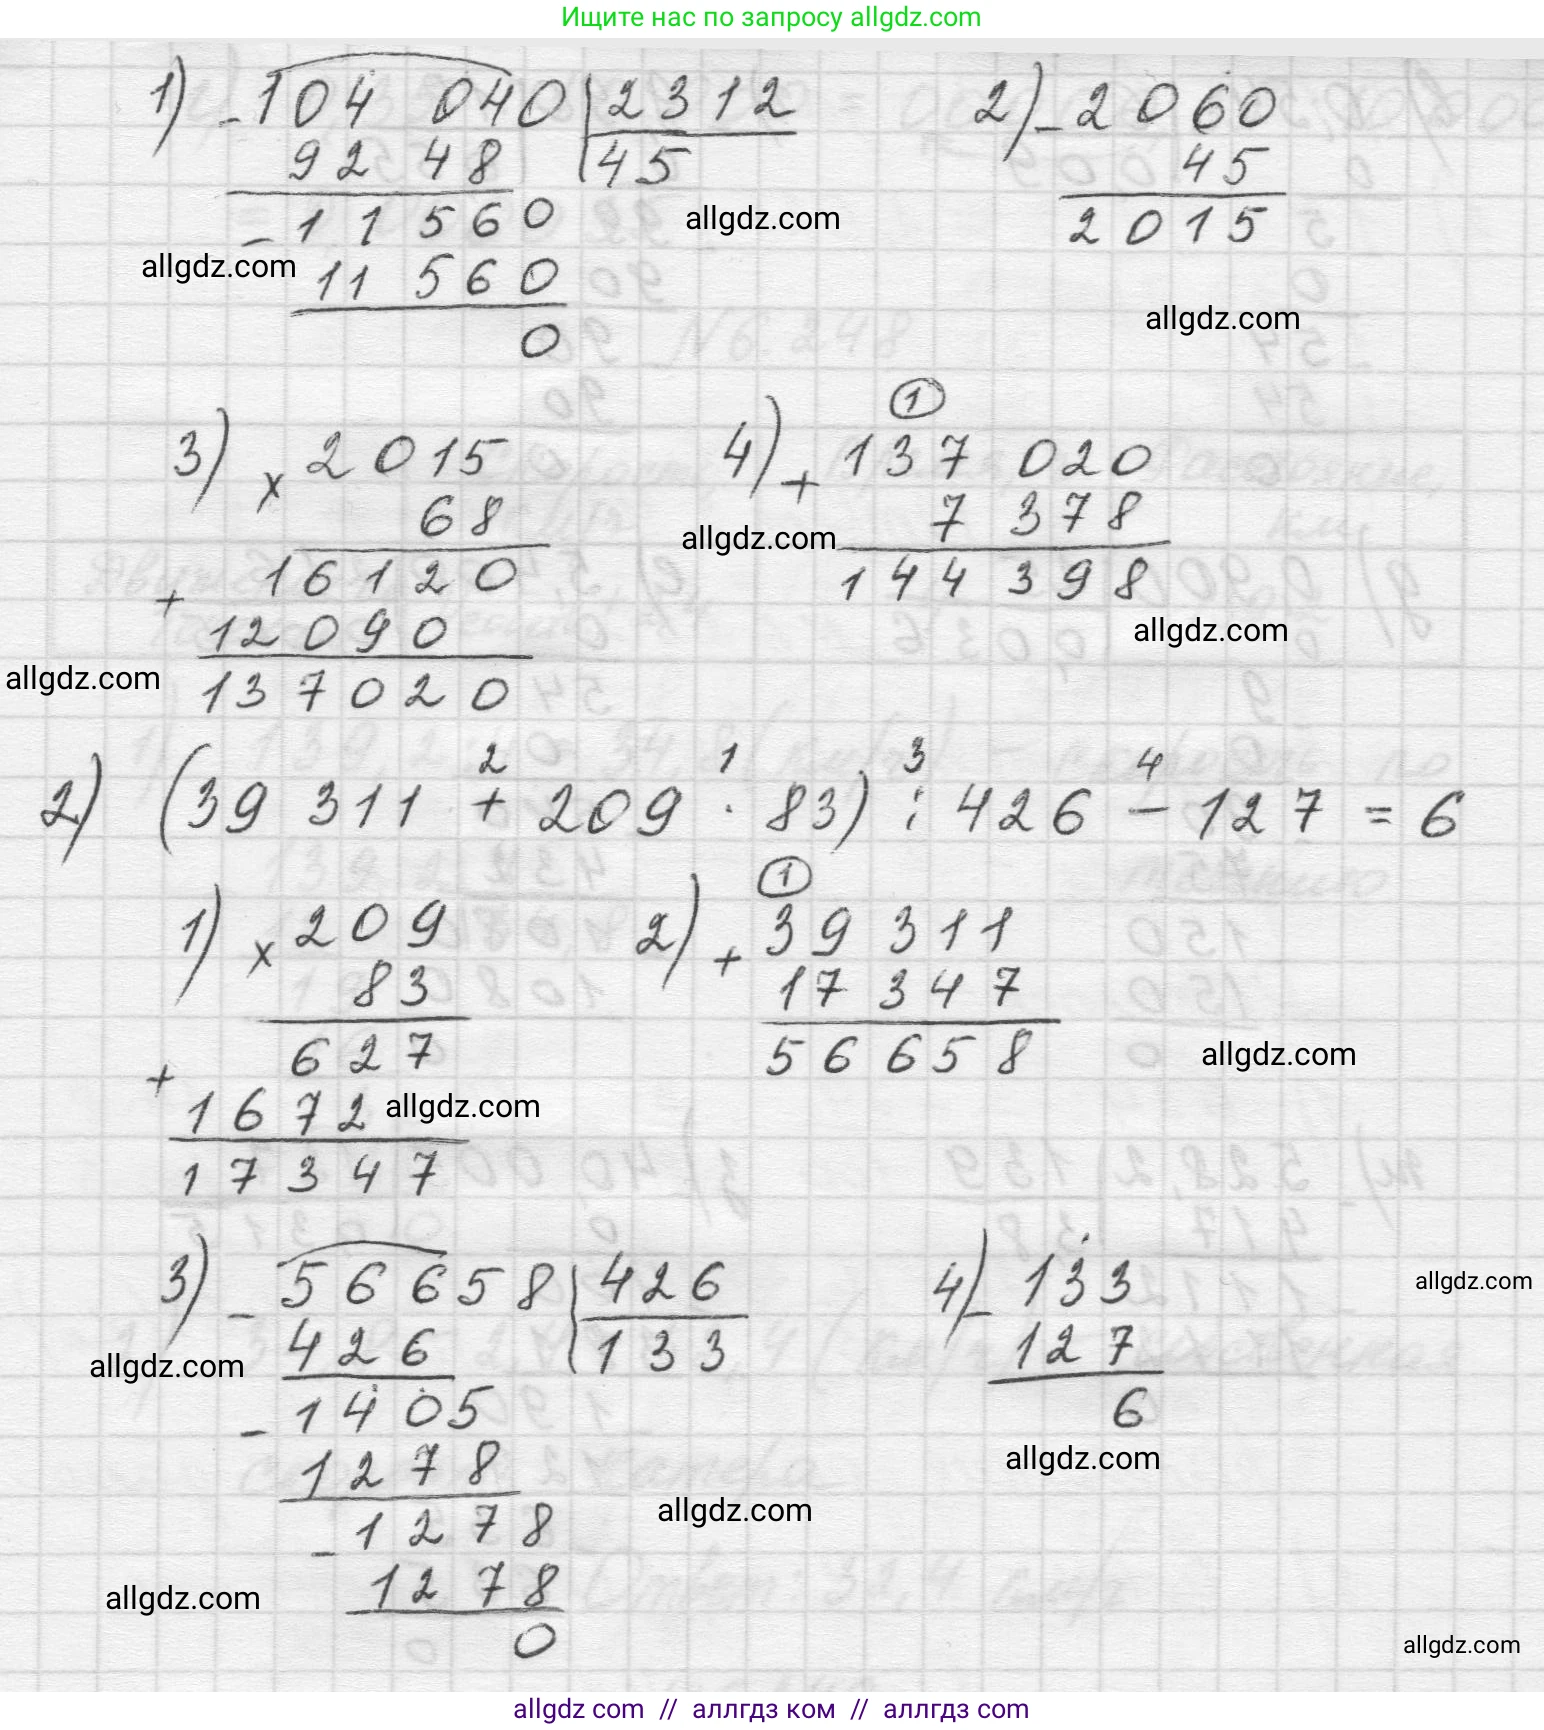 Ищите нас по запросу allgdz.com
1) - 104 040 | 2312
92 48 | 45
- 11 560
11 560
0
allgdz.com
allgdz.com
2) - 2060
45
2015
allgdz.com
3) x 2015
68
+ 16120
12090
137020
allgdz.com
4) + 137 020
1
7 378
144 398
allgdz.com
allgdz.com
2) (39 311 + 209 · 83) : 426 - 127 = 6
2 1 3 4
1) x 209
83
+ 627
1672
17347
allgdz.com
2) + 39 311
1
17 347
56 658
allgdz.com
3) - 56658 | 426
426 | 133
- 1405
1278
- 1278
1278
0
allgdz.com
allgdz.com
allgdz.com
4) - 133
127
6
allgdz.com
allgdz.com
allgdz.com
allgdz com // аллгдз ком // аллгдз com